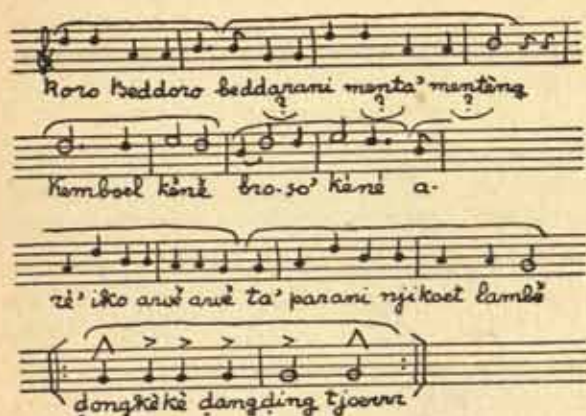 Koro Beddoro beddarani menta' mentèng
? ? ?
Kemboel kènè bro-so' kènè a-
rè' iko awè awè ta' parani njikoet lambè
dongkèkè ḍangḍing tjoerrr